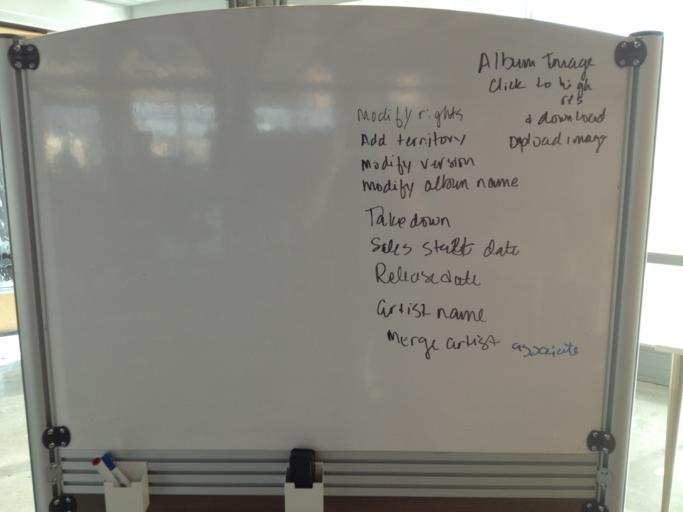 Album Image
Click to high
res
+ download
Upload image
Modify rights
Add territory
Modify version
Modify album name
Takedown
Sales start date
Release date
Artist name
Merge artist associate